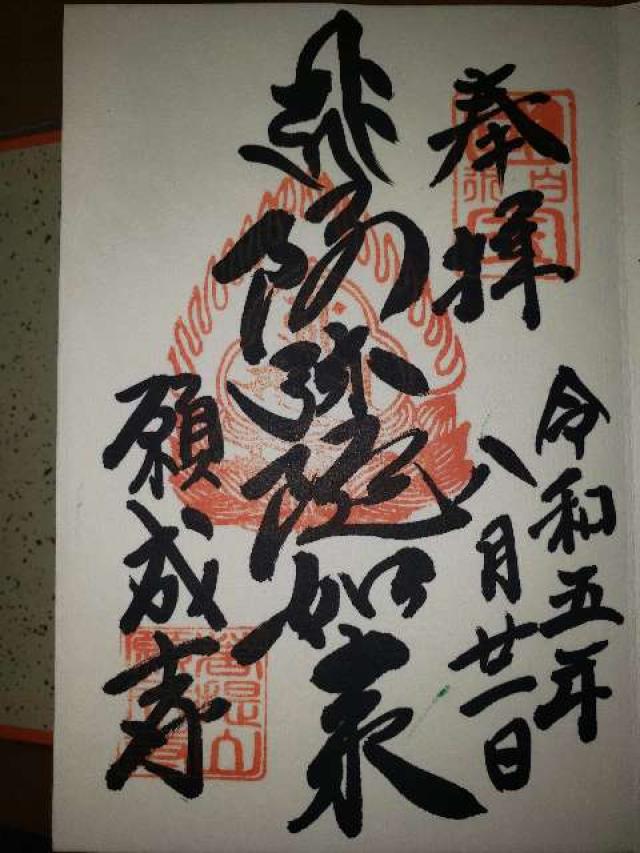 奉拝
令和五年
八月廿一日
阿弥陀如来
願成寺
菩提山